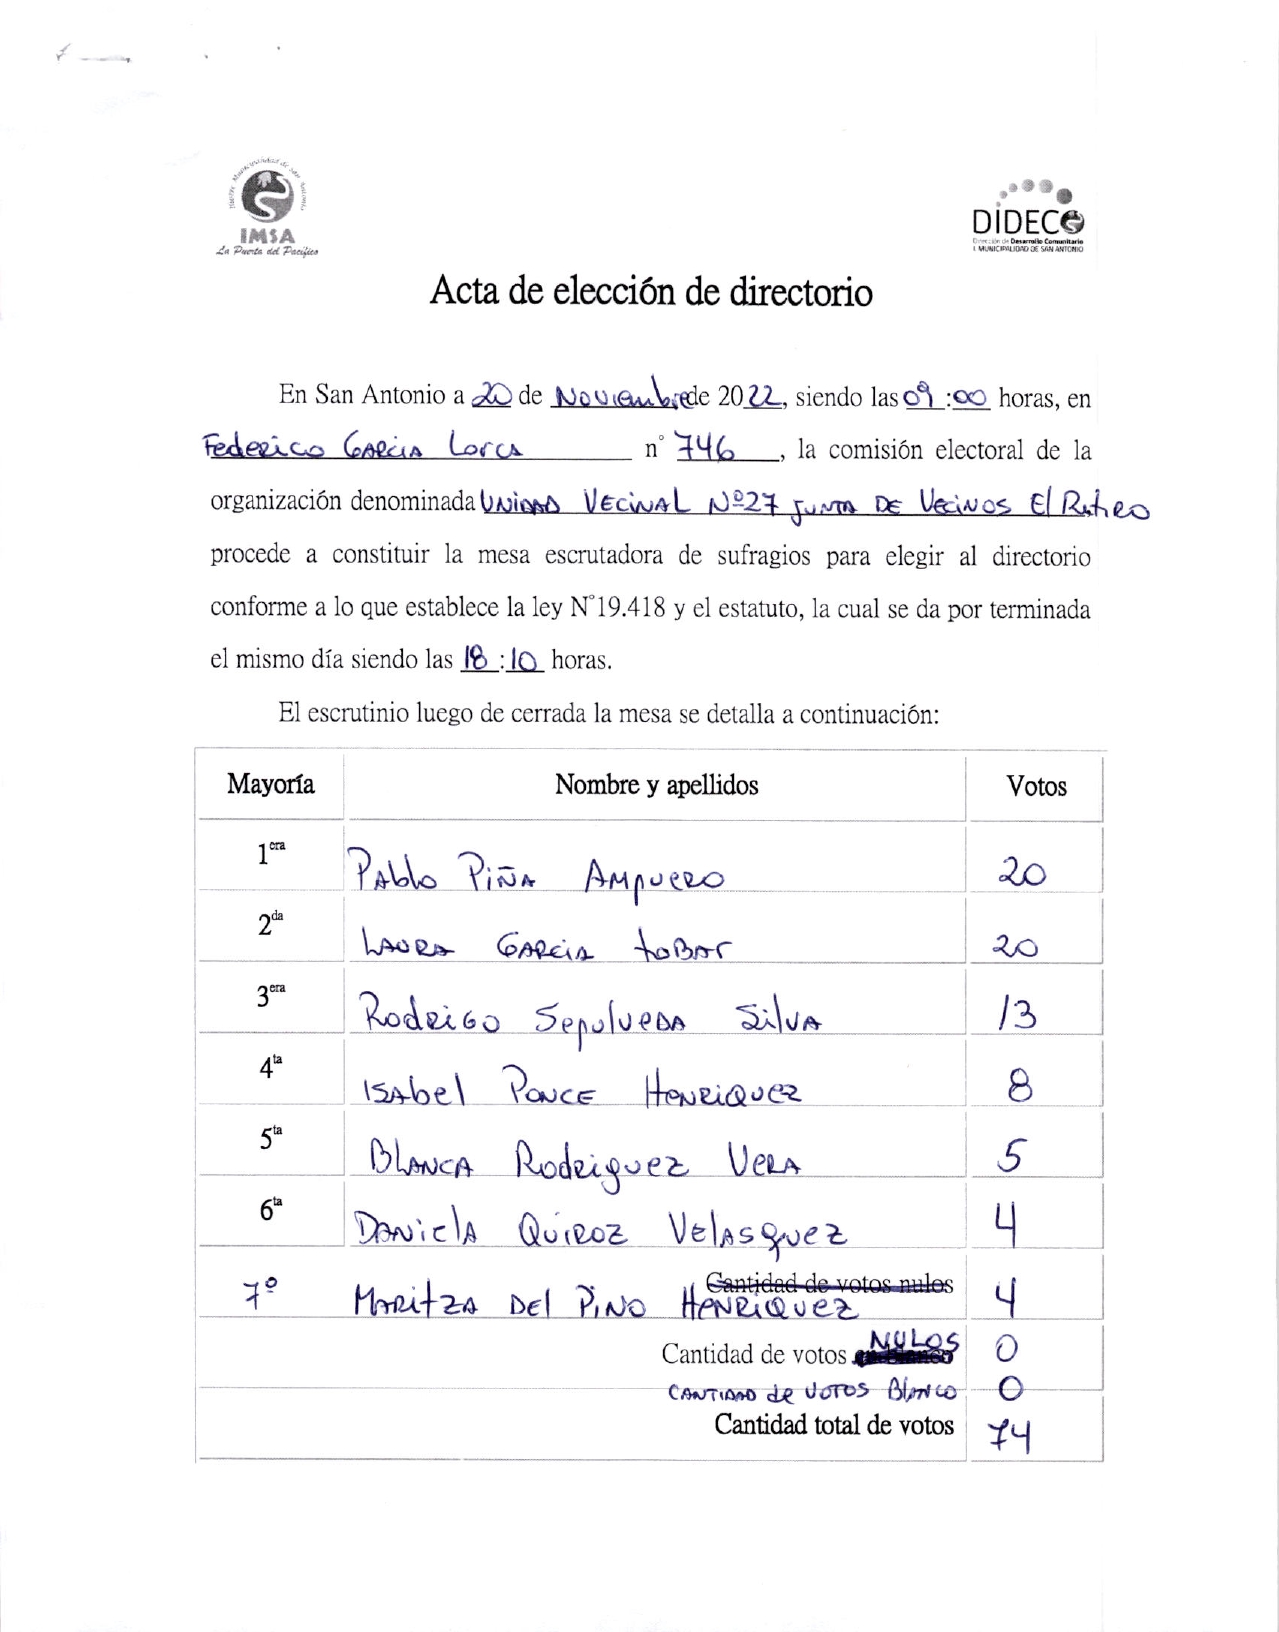 Ilustre Municipalidad de San Antonio
IMSA
La Puerta del Pacífico
DIDECO
Dirección de Desarrollo Comunitario
I. MUNICIPALIDAD DE SAN ANTONIO
Acta de elección de directorio
En San Antonio a 20 de Noviembre de 2022, siendo las 09:00 horas, en
Federico GARCIA Lorca n° 746, la comisión electoral de la
organización denominada UNIDAD VECINAL Nº27 JUNTA DE VECINOS El Retiro
procede a constituir la mesa escrutadora de sufragios para elegir al directorio
conforme a lo que establece la ley N°19.418 y el estatuto, la cual se da por terminada
el mismo día siendo las 18:10 horas.
El escrutinio luego de cerrada la mesa se detalla a continuación:
Mayoría Nombre y apellidos Votos
1era PAblo PiÑA AMpuERO 20
2da LAURA GARCIA toBAr 20
3era RodRiGO SepulveDA SilVA 13
4ta ISAbel PONCE HENRiQUEZ 8
5ta BLANCA RodRiguez VERA 5
6ta DANIElA QUIROZ VElASquez 4
Cantidad de votos nulos
7º MARitZA DEl PiNO HENRiQUEZ 4
Cantidad de votos NULOS 0
CANTIDAD de VOTOS BlANCO 0
Cantidad total de votos 74